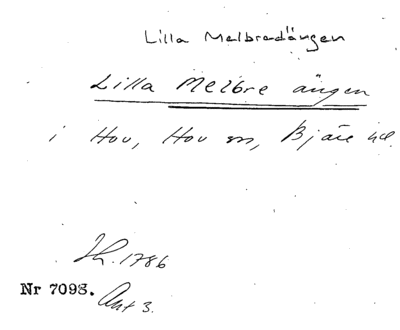 Lilla Melbredängen
Lilla Melbre ängen
i Hov, Hov sn, Bjäre hd.
Sk. 1786
Nr 7098. Akt 3.